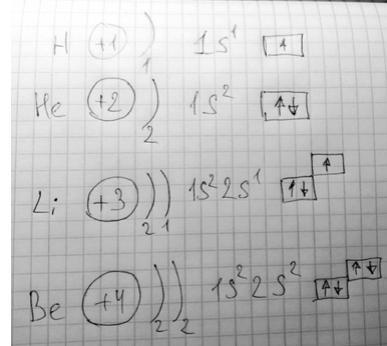 H +1 ) 1 1s¹ ↑
He +2 ) 2 1s² ↑↓
Li +3 ) ) 2 1 1s²2s¹ ↑↓ ↑
Be +4 ) ) 2 2 1s²2s² ↑↓ ↑↓